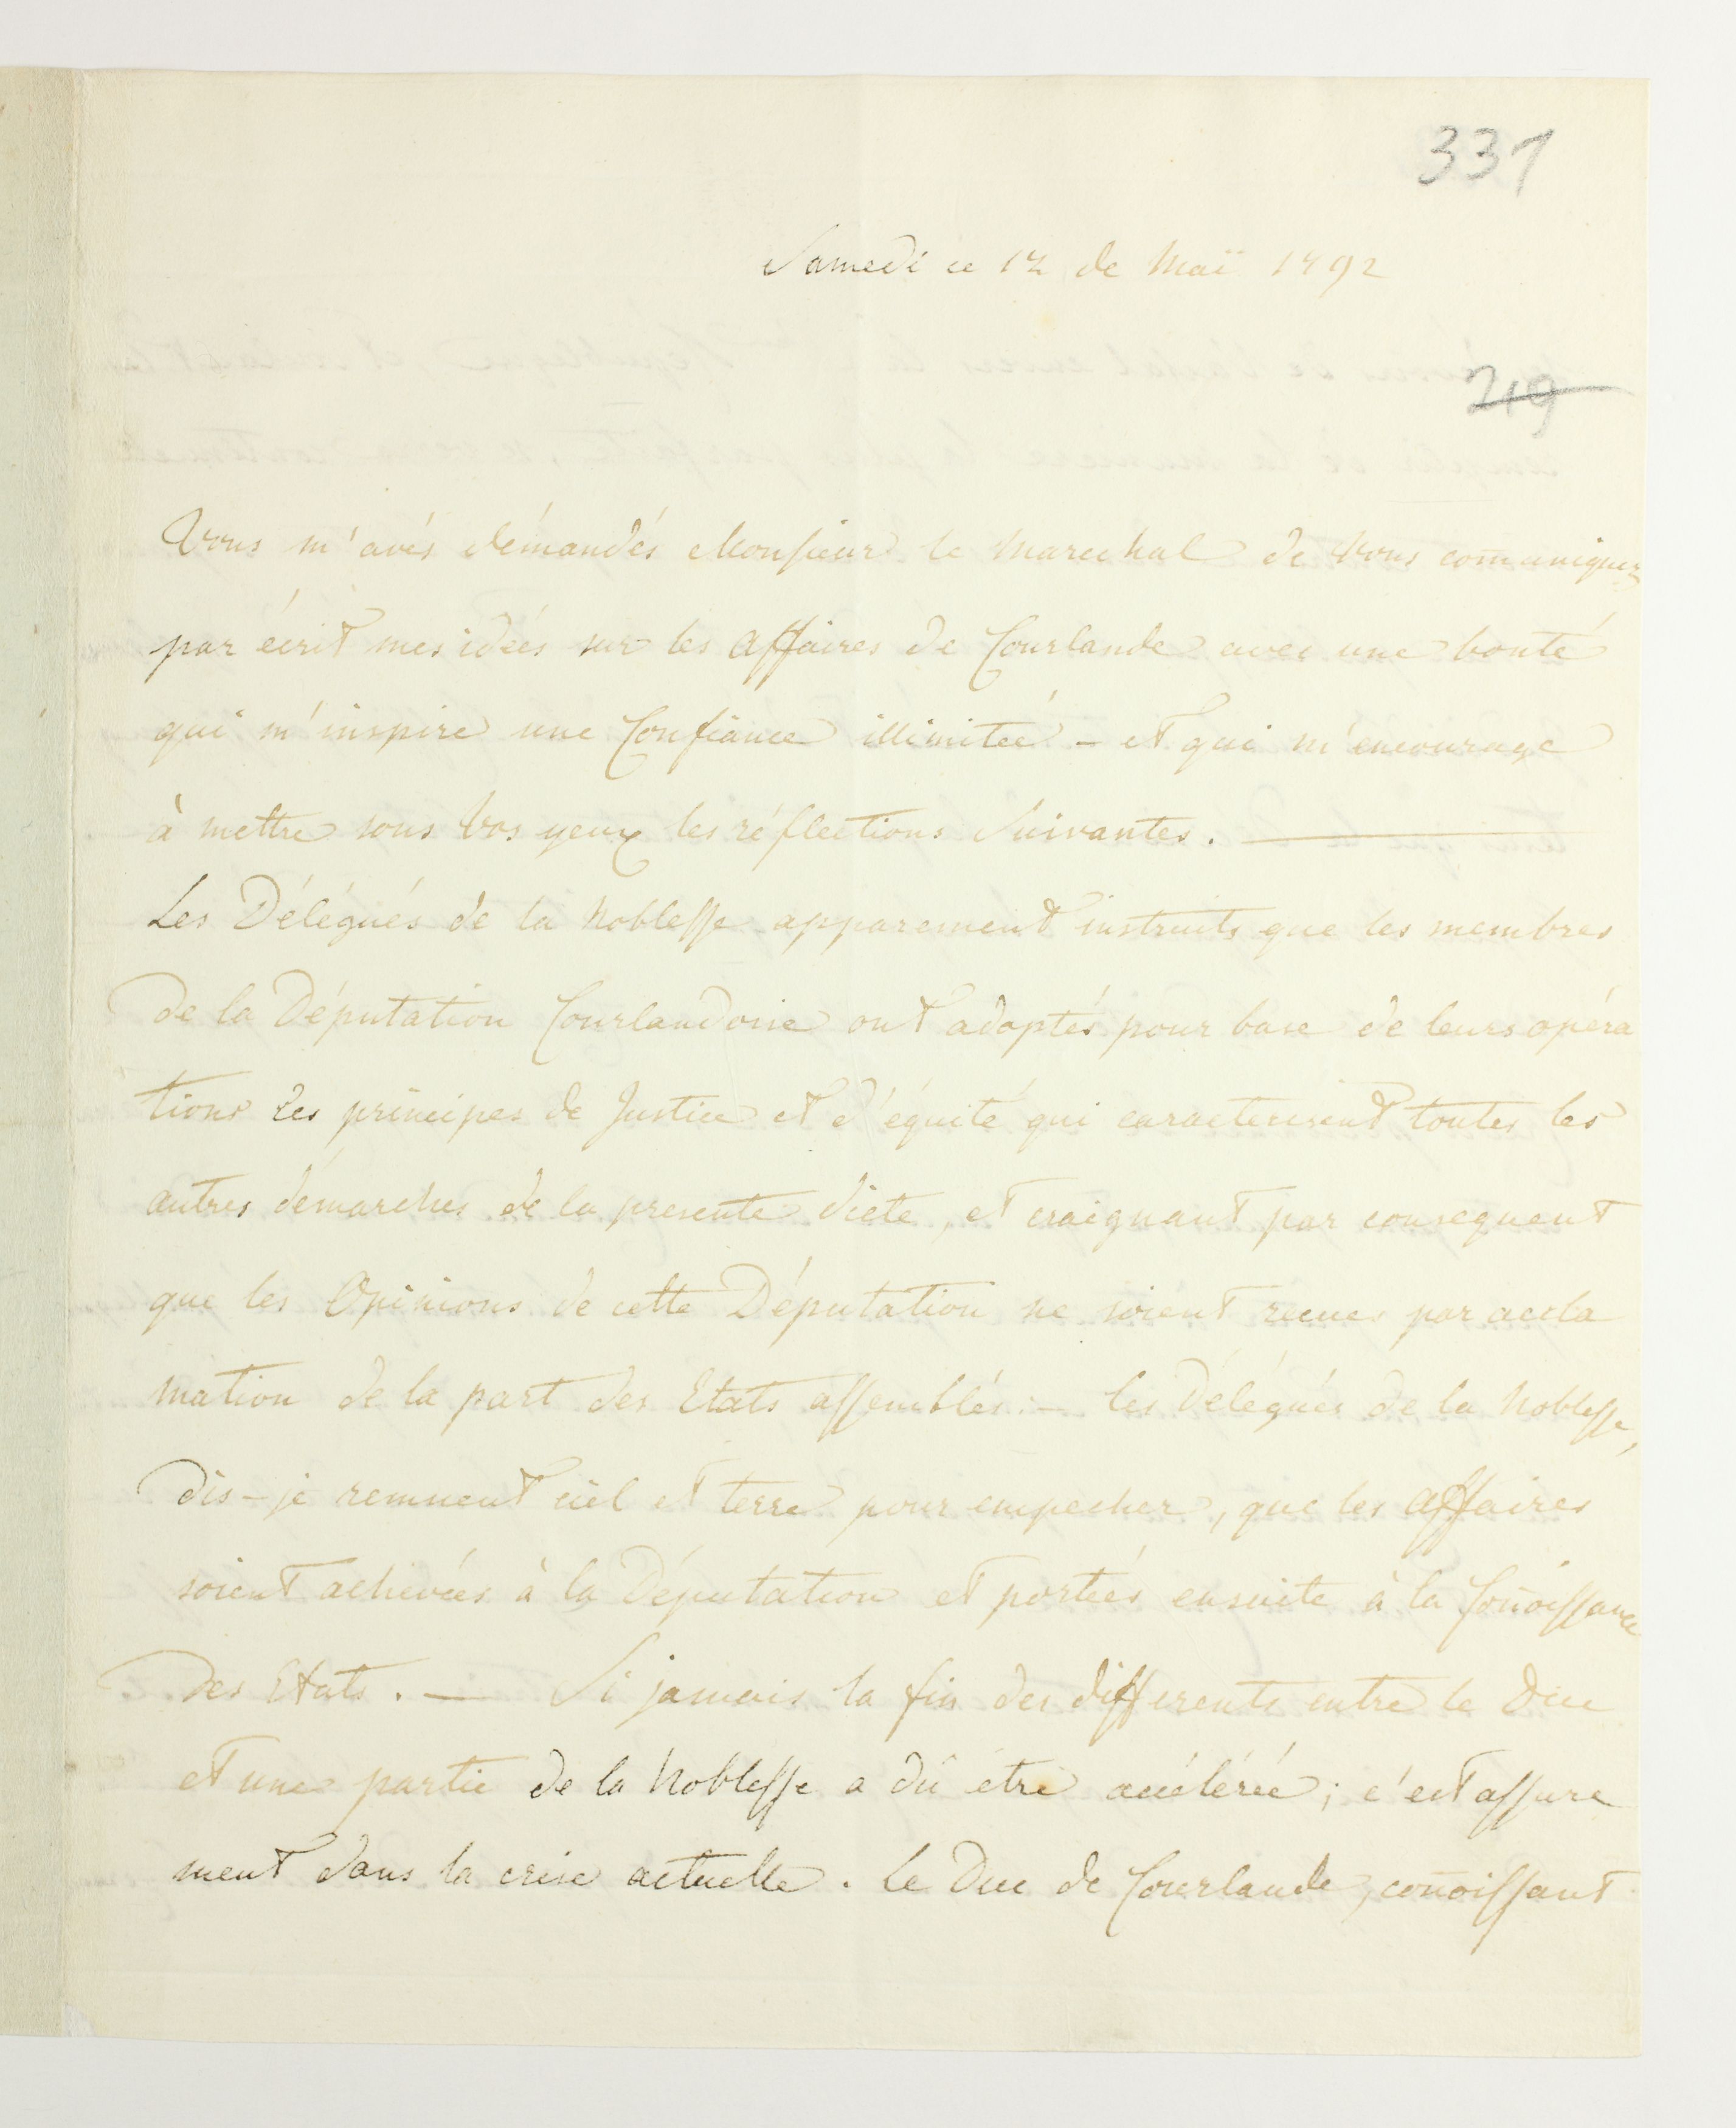 331
Samedi ce 12 de Maï 1792
219
Vous m'avés démandés Monsieur le Marechal de Vous com̄uniquer
par écrit mes idées sur les Affaires de Courlande avec une bonté
qui m'inspire une Confiance illimitée - et qui m'encourage
à mettre sous Vos yeux les réflections Suivantes. —
Les Délégués de la Noblesse apparement instruits que les membres
de la Députation Courlandoise ont adoptés pour base de leurs opéra
tions les principes de Justice et d'équité qui caracterisent toutes les
autres démarches de la presente diète, et craignant par consequent
que les Opinions de cette Députation ne soient recues par accla
mation de la part des Etats assemblés: — les Délégués de la Noblesse,
dis-je remuent ciel et terre pour empecher, que les affaires
soient achevées à la Députation et portées ensuite à la Con̄oissance
des Etats. — Si jamais la fin des differents entre le Duc
et une partie de la Noblesse a dû être accélérée; c'est assure
ment dans la crise actuelle. Le Duc de Courlande, con̄oissant